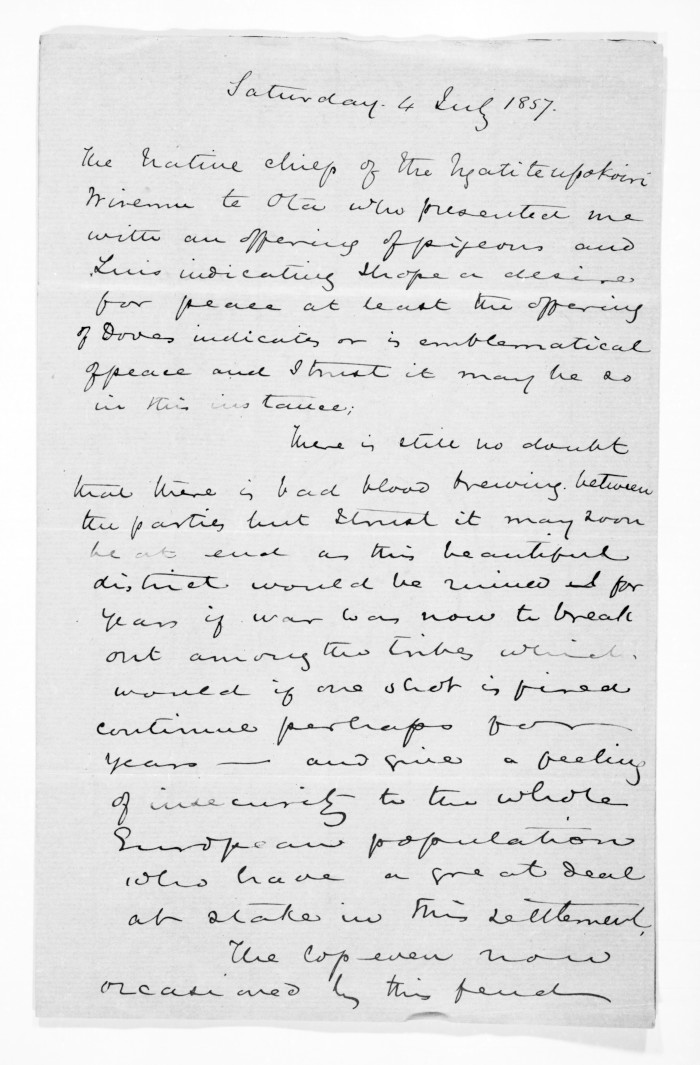 Saturday. 4 July 1857.
The Native chief of the Ngatiteupokoiri
Wiremu te Ota who presented me
with an offering of pigeons and
Tuis indicating I hope a desire
for peace at least the offering
of Doves indicates or is emblematical
of peace and I trust it may be so
in this instance;
There is still no doubt
that there is bad blood brewing between
the parties but I trust it may soon
be at end as this beautiful
district would be ruined for
years if war was now to break
out among the tribes which
would if one shot is fired
continue perhaps for
years — and give a feeling
of insecurity to the whole
European population
who have a great deal
at stake in this settlement.
The Loss even now
occasioned by this feud